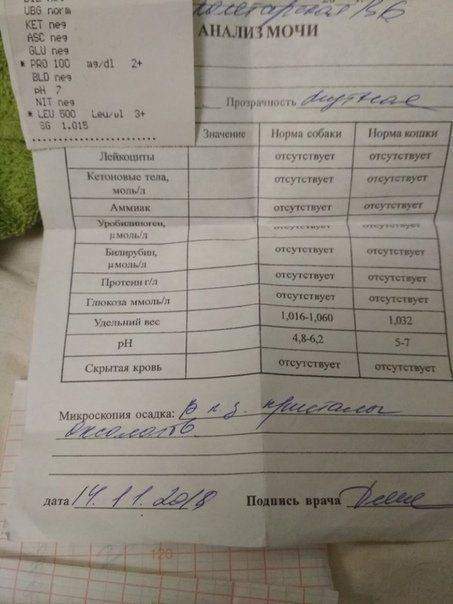 UBG norm
KET neg
ASC neg
GLU neg
* PRO 100 mg/dl 2+
BLD neg
pH 7
NIT neg
* LEU 500 Leu/ul 3+
SG 1.015
АНАЛИЗ МОЧИ
Прозрачность мутная
Значение Норма собаки Норма кошки
Лейкоциты отсутствует отсутствует
Кетоновые тела, моль/л отсутствует отсутствует
Аммиак отсутствует отсутствует
Уробилиноген, µмоль/л отсутствует отсутствует
Билирубин, µмоль/л отсутствует отсутствует
Протеин г/л отсутствует отсутствует
Глюкоза ммоль/л отсутствует отсутствует
Удельний вес 1,016-1,060 1,032
pH 4,8-6,2 5-7
Скрытая кровь отсутствует отсутствует
Микроскопия осадка: В п.з. кристалы
оксалатов
дата 14.11.2018 Подпись врача
120